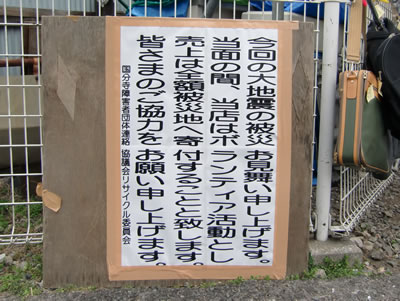 今回の大地震の被災お見舞い申し上げます。
当面の間、当店はボランティア活動とし
売上は全額被災地へ寄付することと致します。
皆さまのご協力をお願い申し上げます。
国分寺障害者団体連絡協議会リサイクル委員会